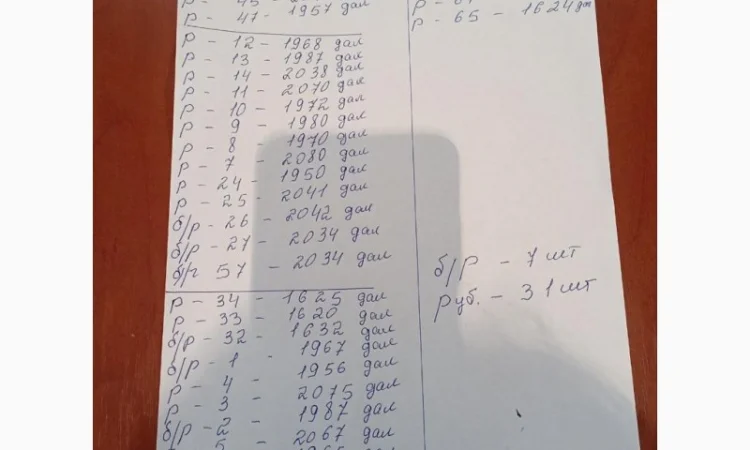 Р - 47 - 1957 дал
Р - 12 - 1968 дал
Р - 13 - 1987 дал
Р - 14 - 2038 дал
Р - 11 - 2070 дал
Р - 10 - 1972 дал
Р - 9 - 1980 дал
Р - 8 - 1970 дал
Р - 7 - 2080 дал
Р - 24 - 1950 дал
Р - 25 - 2041 дал
б/р - 26 - 2042 дал
б/р - 27 - 2034 дал
б/р 57 - 2034 дал
Р - 34 - 1625 дал
Р - 33 - 1620 дал
б/р - 32 - 1632 дал
б/р - 1 - 1967 дал
Р - 4 - 1956 дал
Р - 3 - 2075 дал
б/р - 2 - 1987 дал
5 - 2067 дал
Р - 65 - 1624 дал
б/р - 7 шт
Руб. - 31 шт